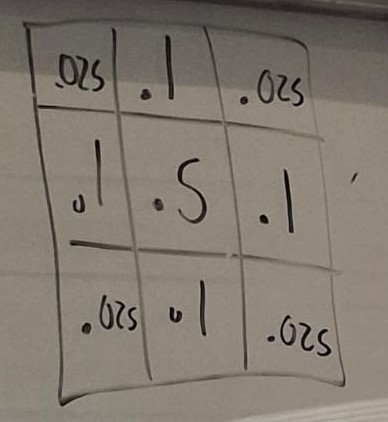 .025 .1 .025
.1 .5 .1
.025 .1 .025